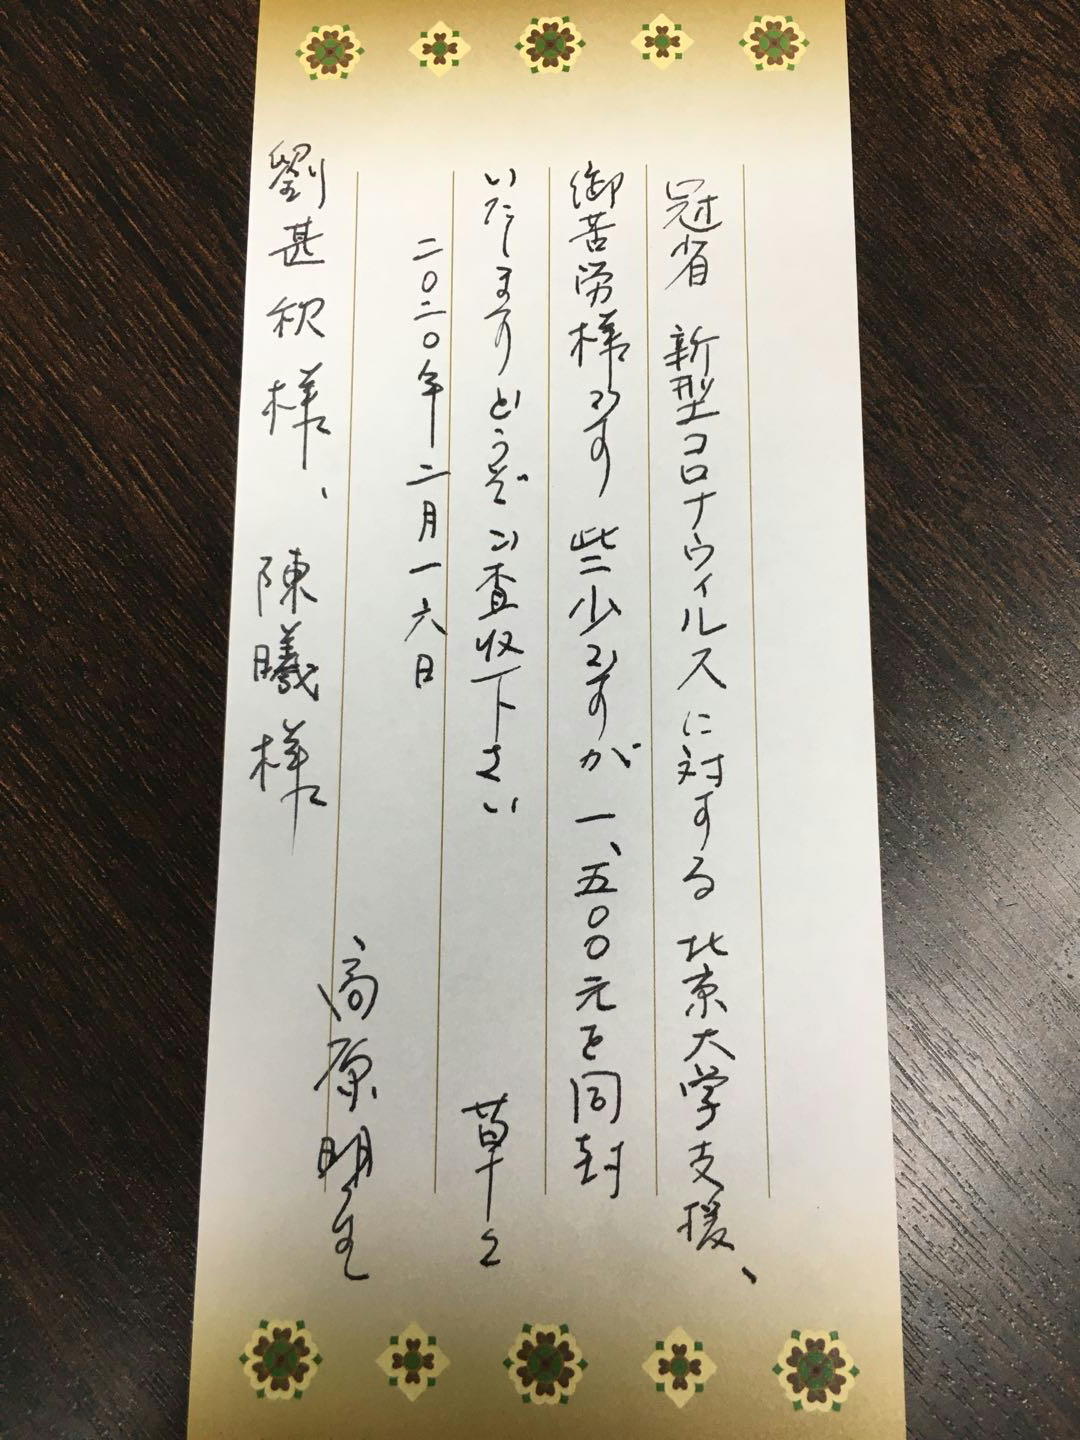 冠省 新型コロナウィルスに対する北京大学支援、
御苦労様です 些少ですが一、五〇〇元を同封
いたしますどうぞご査収下さい 草々
二〇二〇年二月一六日
高原明生
劉甚秋様、陳曦様